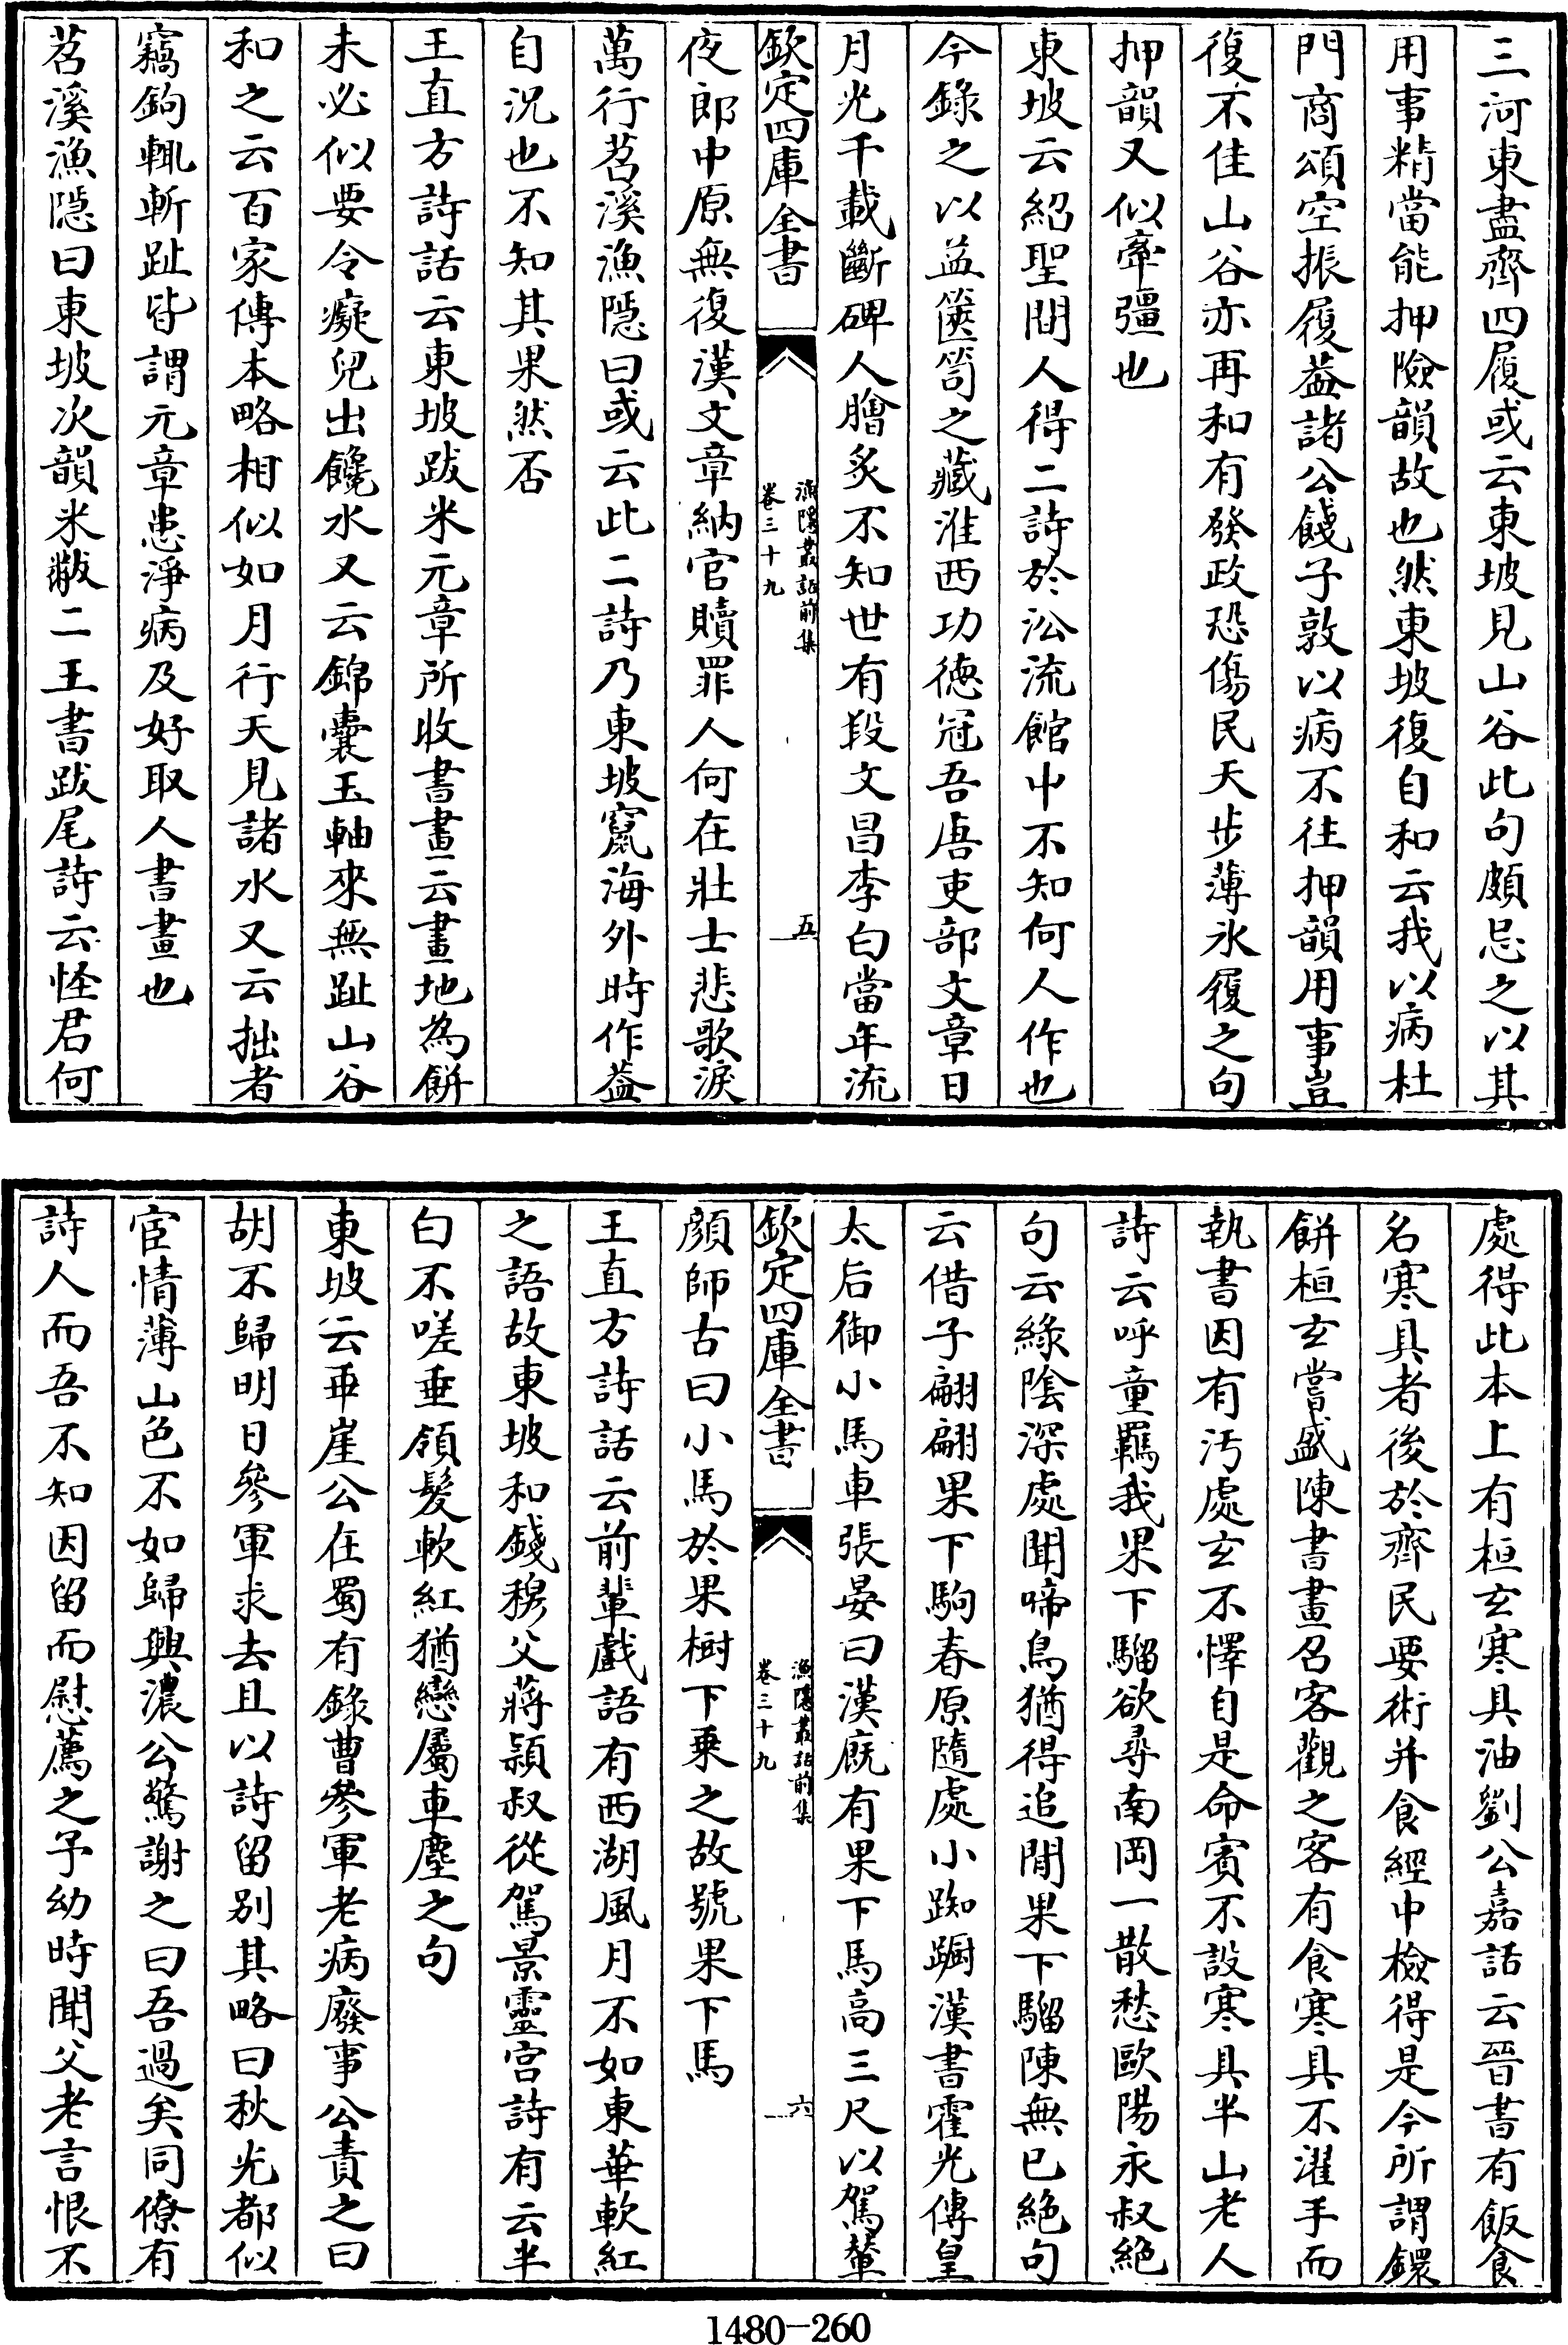 三河東盡齊四履或云東坡見山谷此句頗忌之以其
用事精當能押險韻故也然東坡復自和云我以病杜
門商頌空振履葢諸公餞子敦以病不往押韻用事豈
復不佳山谷亦再和有發政恐傷民天步薄氷履之句
押韻又似牽彊也
東坡云紹聖間人得二詩於沿流館中不知何人作也
今錄之以益篋笥之藏淮西功德冠吾唐吏部文章日
月光千載斷碑人膾炙不知世有段文昌李白當年流
欽定四庫全書
漁隱叢話前集
卷三十九
五
夜郎中原無復漢文章納官贖罪人何在壯士悲歌淚
萬行苕溪漁隱曰或云此二詩乃東坡竄海外時作葢
自況也不知其果然否
王直方詩話云東坡跋米元章所收書畫云畫地為餅
未必似要令癡兒出饞水又云錦囊玉軸來無趾山谷
和之云百家傳本略相似如月行天見諸水又云拙者
竊鉤輒斬趾皆謂元章患淨病及好取人書畫也
苕溪漁隱曰東坡次韻米黻二王書跋尾詩云怪君何
處得此本上有桓玄寒具油劉公嘉話云晉書有飯食
名寒具者後於齊民要術并食經中檢得是今所謂鐶
餅桓玄嘗盛陳書畫召客觀之客有食寒具不濯手而
執書因有汚處玄不懌自是命賓不設寒具半山老人
詩云呼童羈我果下騮欲尋南岡一散愁歐陽永叔絕
句云綠陰深處聞啼鳥猶得追閒果下騮陳無已絕句
云借子翩翩果下駒春原隨處小踟蹰漢書霍光傳皇
太后御小馬車張晏曰漢厩有果下馬高三尺以駕輦
欽定四庫全書
漁隱叢話前集
卷三十九
六
顔師古曰小馬於果樹下乗之故號果下馬
王直方詩話云前輩戲語有西湖風月不如東華軟紅
之語故東坡和錢穆父蔣潁叔從駕景靈宮詩有云半
白不嗟垂領髮軟紅猶戀屬車塵之句
東坡云乖崖公在蜀有錄曹參軍老病廢事公責之曰
胡不歸明日參軍求去且以詩留别其略曰秋光都似
宦情薄山色不如歸興濃公驚謝之曰吾過矣同僚有
詩人而吾不知因留而慰薦之予幼時聞父老言恨不
1480-260